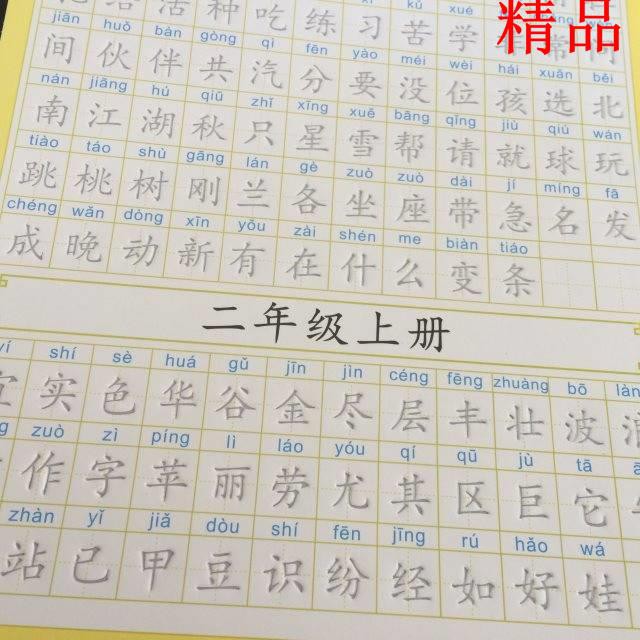 精品
活 种 吃 练 习 苦 学
jiān huǒ bàn gòng qì fēn yào méi wèi hái xuǎn běi
间 伙 伴 共 汽 分 要 没 位 孩 选 北
nán jiāng hú qiū zhǐ xīng xuě bāng qǐng jiù qiú wán
南 江 湖 秋 只 星 雪 帮 请 就 球 玩
tiào táo shù gāng lán gè zuò zuò dài jí míng fā
跳 桃 树 刚 兰 各 坐 座 带 急 名 发
chéng wǎn dòng xīn yǒu zài shén me biàn tiáo
成 晚 动 新 有 在 什 么 变 条
二年级上册
yí shí sè huá gǔ jīn jìn céng fēng zhuàng bō làn
宜 实 色 华 谷 金 尽 层 丰 壮 波 浪
zuò zì píng lì láo yóu qí qū jù tā
作 字 苹 丽 劳 尤 其 区 巨 它
zhàn yǐ jiǎ dòu shí fēn jīng rú hǎo wá
站 已 甲 豆 识 纷 经 如 好 娃